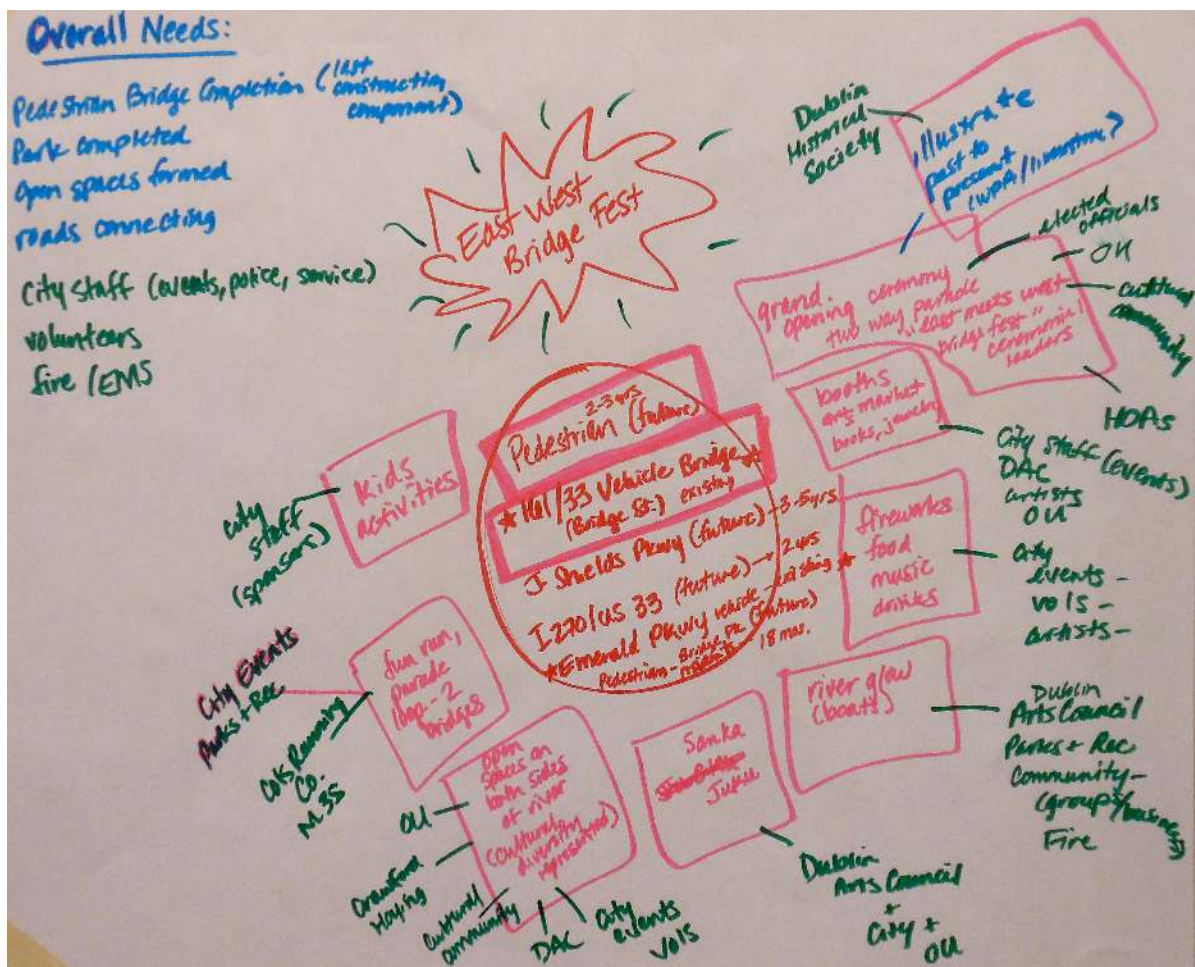 Overall Needs:
Pedestrian Bridge Completion (last construction component)
Park completed
Open spaces formed
roads connecting
City staff (events, police, service)
volunteers
fire/EMS
East West
Bridge Fest
Dublin
Historical
Society
illustrate
past to
present
(WPA/
elected
officials
OU
cultural
community
HOAs
grand
opening ceremony
two way parade
"east meets west
bridge fest"
ceremonial
leaders
booths
art market
books, jewelry
City staff (events)
DAC
artists
OU
fireworks
food
music
drinks
City
events -
vols -
artists -
river glow
(boats)
Dublin
Arts Council
Parks + Rec
Community -
(groups/business)
Fire
Sanka
Juku
Dublin
Arts Council
+
City +
OU
open
spaces on
both sides
of river
(cultural
diversity
represented)
OU
Crawford
Hoying
Cultural
community
DAC
City
events
vols
fun run,
parade
loop - 2
bridges
City Events
Parks + Rec
Cols Running
Co.
M3S
kids
activities
city
staff
(sponsors)
2-3 yrs
Pedestrian (future)
★ 161/33 Vehicle Bridge ★
(Bridge St.) existing
J- Shields Pkwy (future) - 3-5 yrs
I270/US 33 (future) → 2 yrs
★ Emerald Pkwy vehicle - existing ★
Pedestrian - Bridge Pk (future)
18 mos.